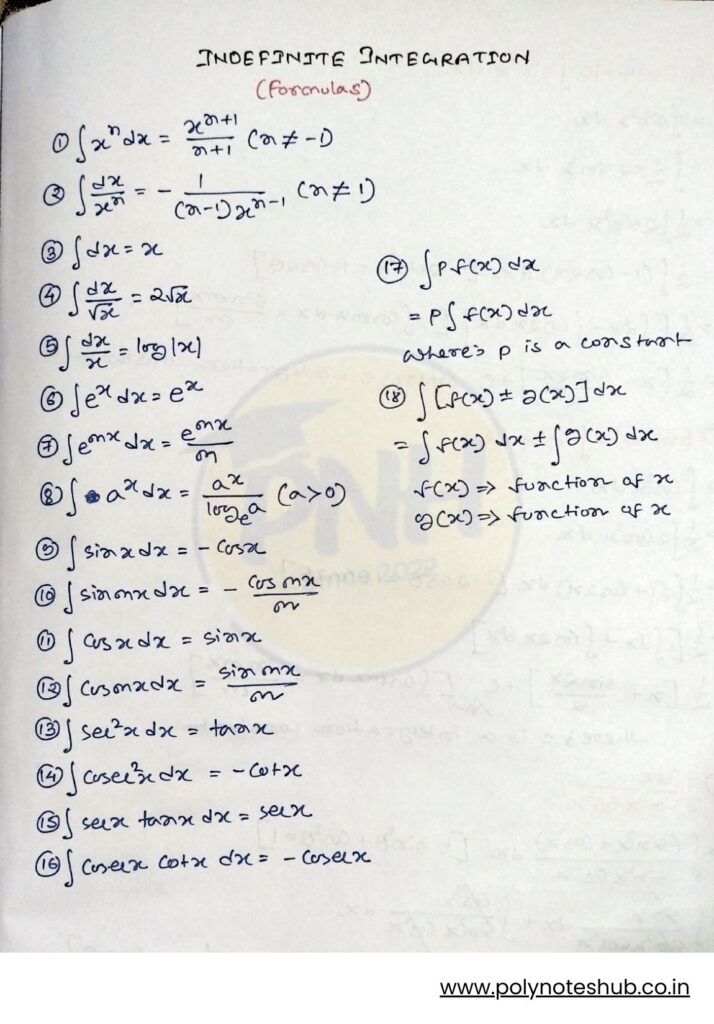 INDEFINITE INTEGRATION
(Formulas)
① ∫ xⁿ dx = xⁿ⁺¹/n+1 (n ≠ -1)
② ∫ dx/xⁿ = - 1/(n-1)xⁿ⁻¹ (n ≠ 1)
③ ∫ dx = x
④ ∫ dx/√x = 2√x
⑤ ∫ dx/x = log|x|
⑥ ∫ eˣ dx = eˣ
⑦ ∫ eᵐˣ dx = eᵐˣ/m
⑧ ∫ aˣ dx = aˣ/logₑa (a>0)
⑨ ∫ sinx dx = - cosx
⑩ ∫ sinmx dx = - cos mx/m
⑪ ∫ cosx dx = sinx
⑫ ∫ cosmx dx = sin mx/m
⑬ ∫ sec²x dx = tanx
⑭ ∫ cosec²x dx = -cotx
⑮ ∫ secx tanx dx = secx
⑯ ∫ cosecx cotx dx = - cosecx
⑰ ∫ P f(x) dx
= P ∫ f(x) dx
where; P is a constant
⑱ ∫ [f(x) ± g(x)] dx
= ∫ f(x) dx ± ∫ g(x) dx
f(x) => function of x
g(x) => function of x
PNH
www.polynoteshub.co.in